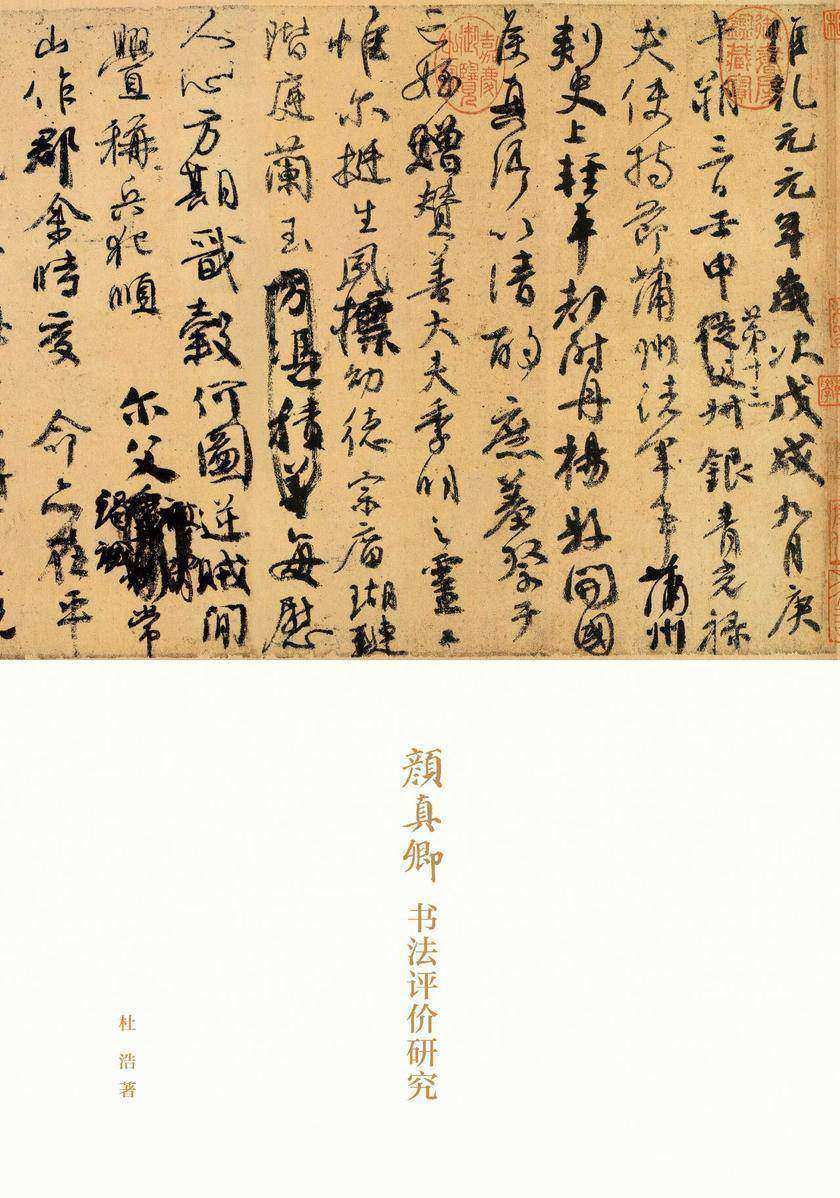 維乾元元年歲次戊戌九月庚
午朔三日壬申第十三叔銀青光祿
夫使持節蒲州諸軍事蒲州
刺史上輕車都尉丹楊縣開國
侯真卿以清酌庶羞祭于
亡姪贈贊善大夫季明之靈曰
惟尔挺生夙標幼德宗廟瑚璉
階庭蘭玉方憑積善每慰
人心方期戩穀何圖逆賊閒
釁稱兵犯順尔父常
山作郡余時受命亦在平
顏真卿
书法评价研究
杜浩著